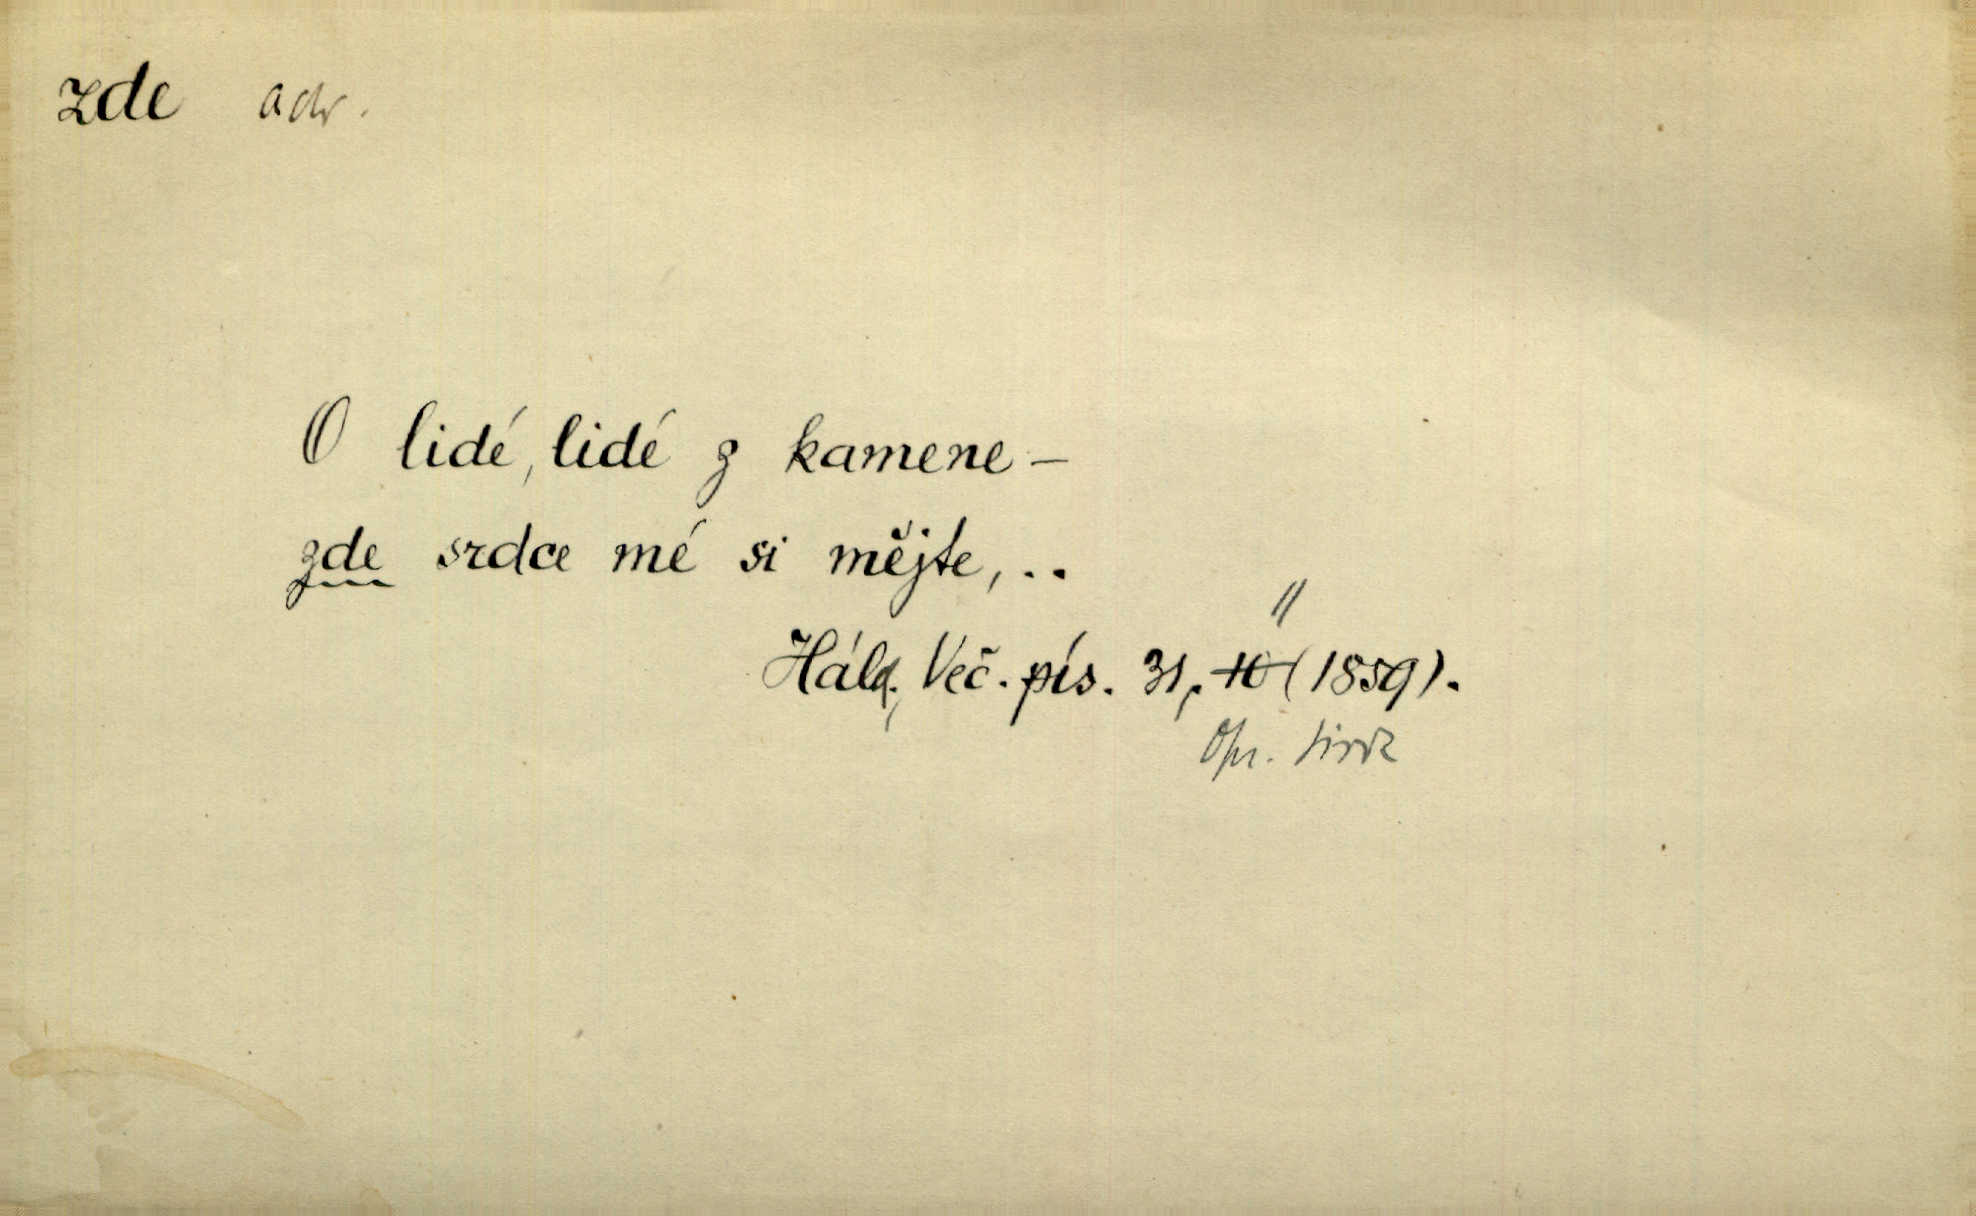 zde adv.
O lidé, lidé z kamene –
zde srdce mé si mějte, ..
11
Hál., Več. pís. 31, 10 (1859).
Opr.